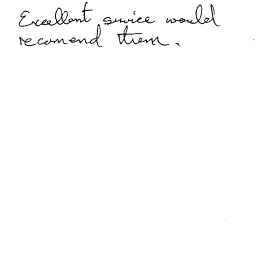 Excellent service would
recomend them.